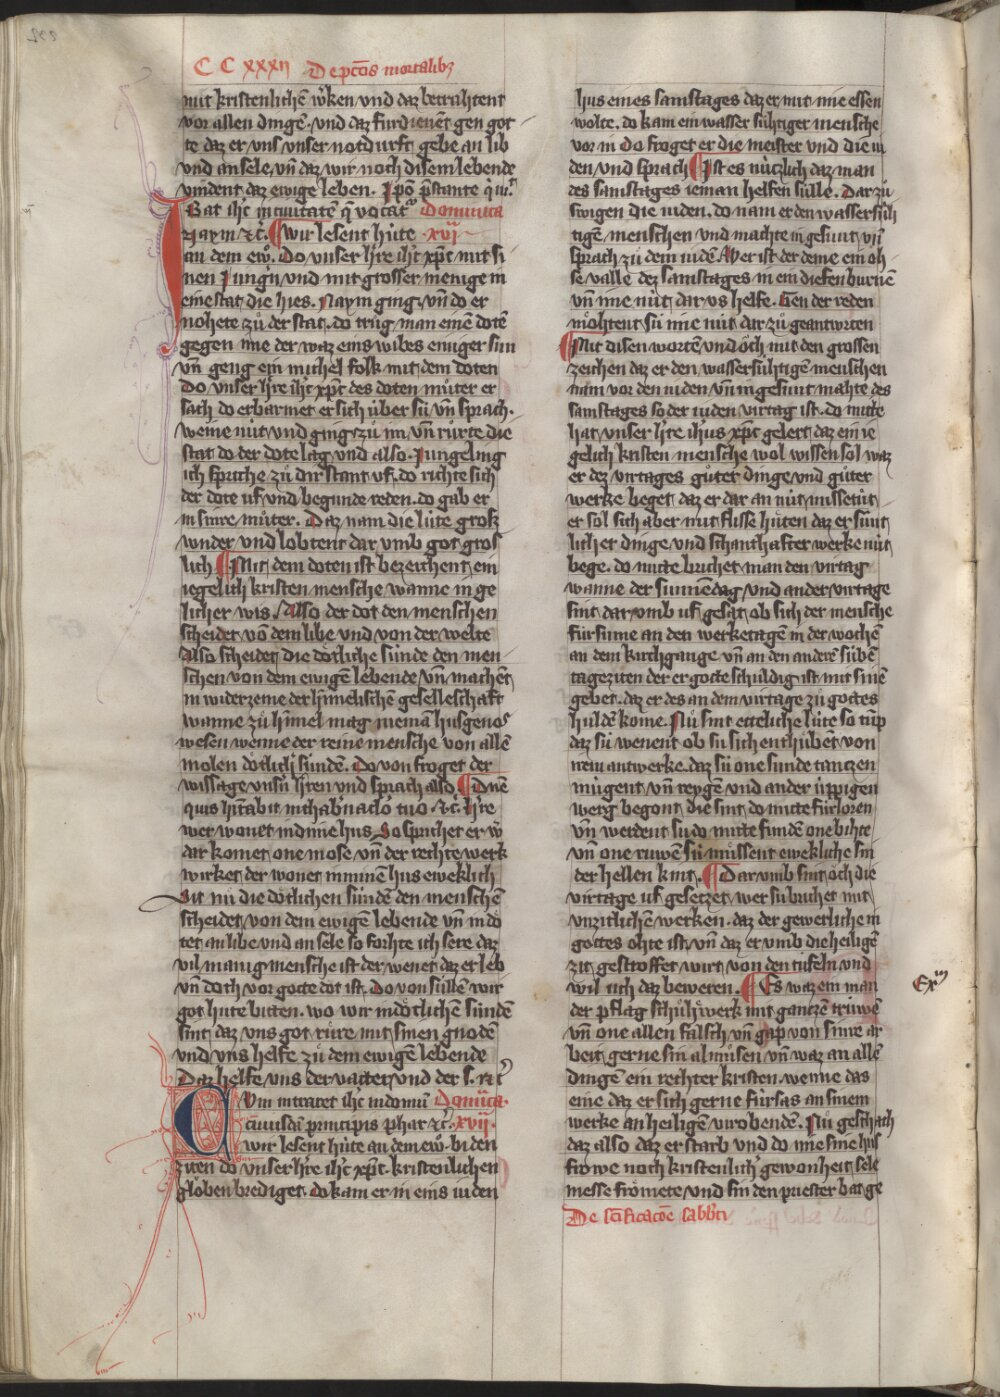 C C xxxii De pctōis mortalibꝫ
mit kristenlichē w̾ken vnd daz betrahtent
vor allen dingē. vnd daz fúrdienēt gen got
te daz er vns vnser notdurft gebe an lib
vnd an sele. vn̄ daz wir noch disem lebende
vindent daz ewige leben.
Bat ih̄c in ciuitatē q̄ vocat᷑ Dominica
Naym ⁊c̄. Wir lesent hùte xvi
an dem ew̄. Do vnser h̾re ih̄c xp̄c mit si
nen Jung̾n vnd mit grosser menige in
eine stat die hies. Naym ging. vn̄ do er
nohete zů der stat. do trůg man einē dotē
gegen ime der waz eins wibes einiger sun
vn̄ geng ein michel folk mit dem doten
Do vnser h̾re ih̄c xp̄c des doten můter er
sach do erbarmet er sich über sü vn̄ sprach.
weine nüt vnd ging zů im vn̄ rürte die
stat do der dote lag vnd also. Jungeling
ich spriche zů dir stant vf. do richte sich
der dote vf vnd begunde reden. do gab er
in sinre můter. Daz nam die lüte groſz
wnder vnd lobtent dar vmb got gros
lich Mit dem doten ist bezeichent ein
iegelich kristen mensche wanne in ge
licher wis. Also der dot den menschen
scheidet vō dem libe vnd von der welte
Also scheidet die dötliche sünde den men
schen von dem ewigē lebende vn̄ machēt
in widerzeme der h̾melschen geselleschaft
wanne zů h̾mel mag niemā husgenos
wesen wenne der reine mensche von allē
molen dötlich sündē. Do von froget der
wissage vnsn̄ h̾ren vnd sprach also Dn̄e
quis h̾itabit in thab̾naclo tuo ⁊c̄. h̾re
wer wonet in dinne hus. So sprichet er w̾
dar komet one mose vn̄ der rechte werk
wirket der wonet in minem hus eweklich
Sit nü die dötlichen sündē den menschē
scheidet von dem ewigen lebende vn̄ in dö
tet an libe vnd an sele so förhte ich sere daz
vil manig mensche ist der wenet daz er leb
vn̄ doch vor gotte dot ist. Do von süllē wir
got hüte bitten. wo wir in dötlichen sündē
sint. daz vns got rüre mit sinen gnodē
vnd vns helfe zů dem ewigē lebende
Daz helfe vns der vatter vnd der s. ⁊c̄
Cum intraret ih̄c in domū Dominica
cuiusdā principis phar ⁊c̄. xvii
wir lesent hüte an dem ew̄. bi den
ziten do vnser h̾re ih̄c xp̄c. kristenlichen
globen brediget. do kam er in eins iuden
hus eines samstages daz er mit ime essen
wolte. do kam ein wasser sühtiger mensche
vor in Do froget er die meister vnd die iu
den vnd sprach Ist es nüczlich daz man
des samstages ieman helfen sülle. Dar zů
swigen die iuden. do nam er den wassersüh
tigē menschen vnd machte in gesunt vn̄
sprach zů dem iudē Wer ist der deme ein oh
se valle dez samstages in ein diefen burnē
vn̄ ime nüt dar vs helfe. Gen der reden
möhtent sü ime nüt dar zů geantwrten
Mit disen wortē vnd öch mit den grossen
zeichen daz er den wassersühtigē menschen
nam vor den iuden vn̄ in gesunt mahte des
samstages so der iuden virtag ist. do mitte
hat vnser h̾re ih̄us xp̄c gelert daz ein ie
gelich kristen mensche wol wissen sol waz
er dez virtages güter dinge vnd güter
werke beget daz er dar an nüt missetüt
er sol sich aber mit flisse hüten daz er sünt
licher dinge vnd schanthafter werke nüt
bege. do mitte brichet man den virtag
wanne der sunnēdag vnd ander virtage
sint dar vmb vf gesat ob sich der mensche
fürsume an den werketagē in der wochē
an dem kirchgange vn̄ an den anderē sübē
tageziten der er gotte schuldig ist mit sinē
gebet. daz er des an dem virtage zů gottes
huldē kome. Nü sint etteliche lüte so tüp
daz sü wenent ob sü sich enthübent von
irem antwerke. daz sü one sunde tanczen
mügent vn̄ reygen vnd ander üppigen
werg begont die sint do mitte fürloren
vn̄ werdent sü do mitte fundē one bihte
vn̄ one ruwē sü müssent eweklliche sin
der hellen kint. Dar vmb sint öch die
virtage vf gesetzet. wer sü brichet mit
vnzitlichen werken. daz der gewerliche in
gottes ohte ist vn̄ daz er vmb die heiligē
zit gestroffet wirt von den tüfeln vnd
wil ich daz beweren. Es waz ein man
der pflag schůhwerk mit ganczē trüwē
vn̄ one allen falsch vn̄ gap von sinre ar
beit gerne sin almůsen vn̄ waz an allē
dingē ein rechter kristen. wenne das
eine daz er sich gerne fürsas an sinem
werke an heiligen virobendē. Nü geschach
daz also daz er starb vnd do ime sine hus
frowe noch kristenlich̾ gewonheit sele
messe frömete vnd sin den priester bat ge
Ex<sup>m</sup>
De sc̄ificacōe sabb̄ti